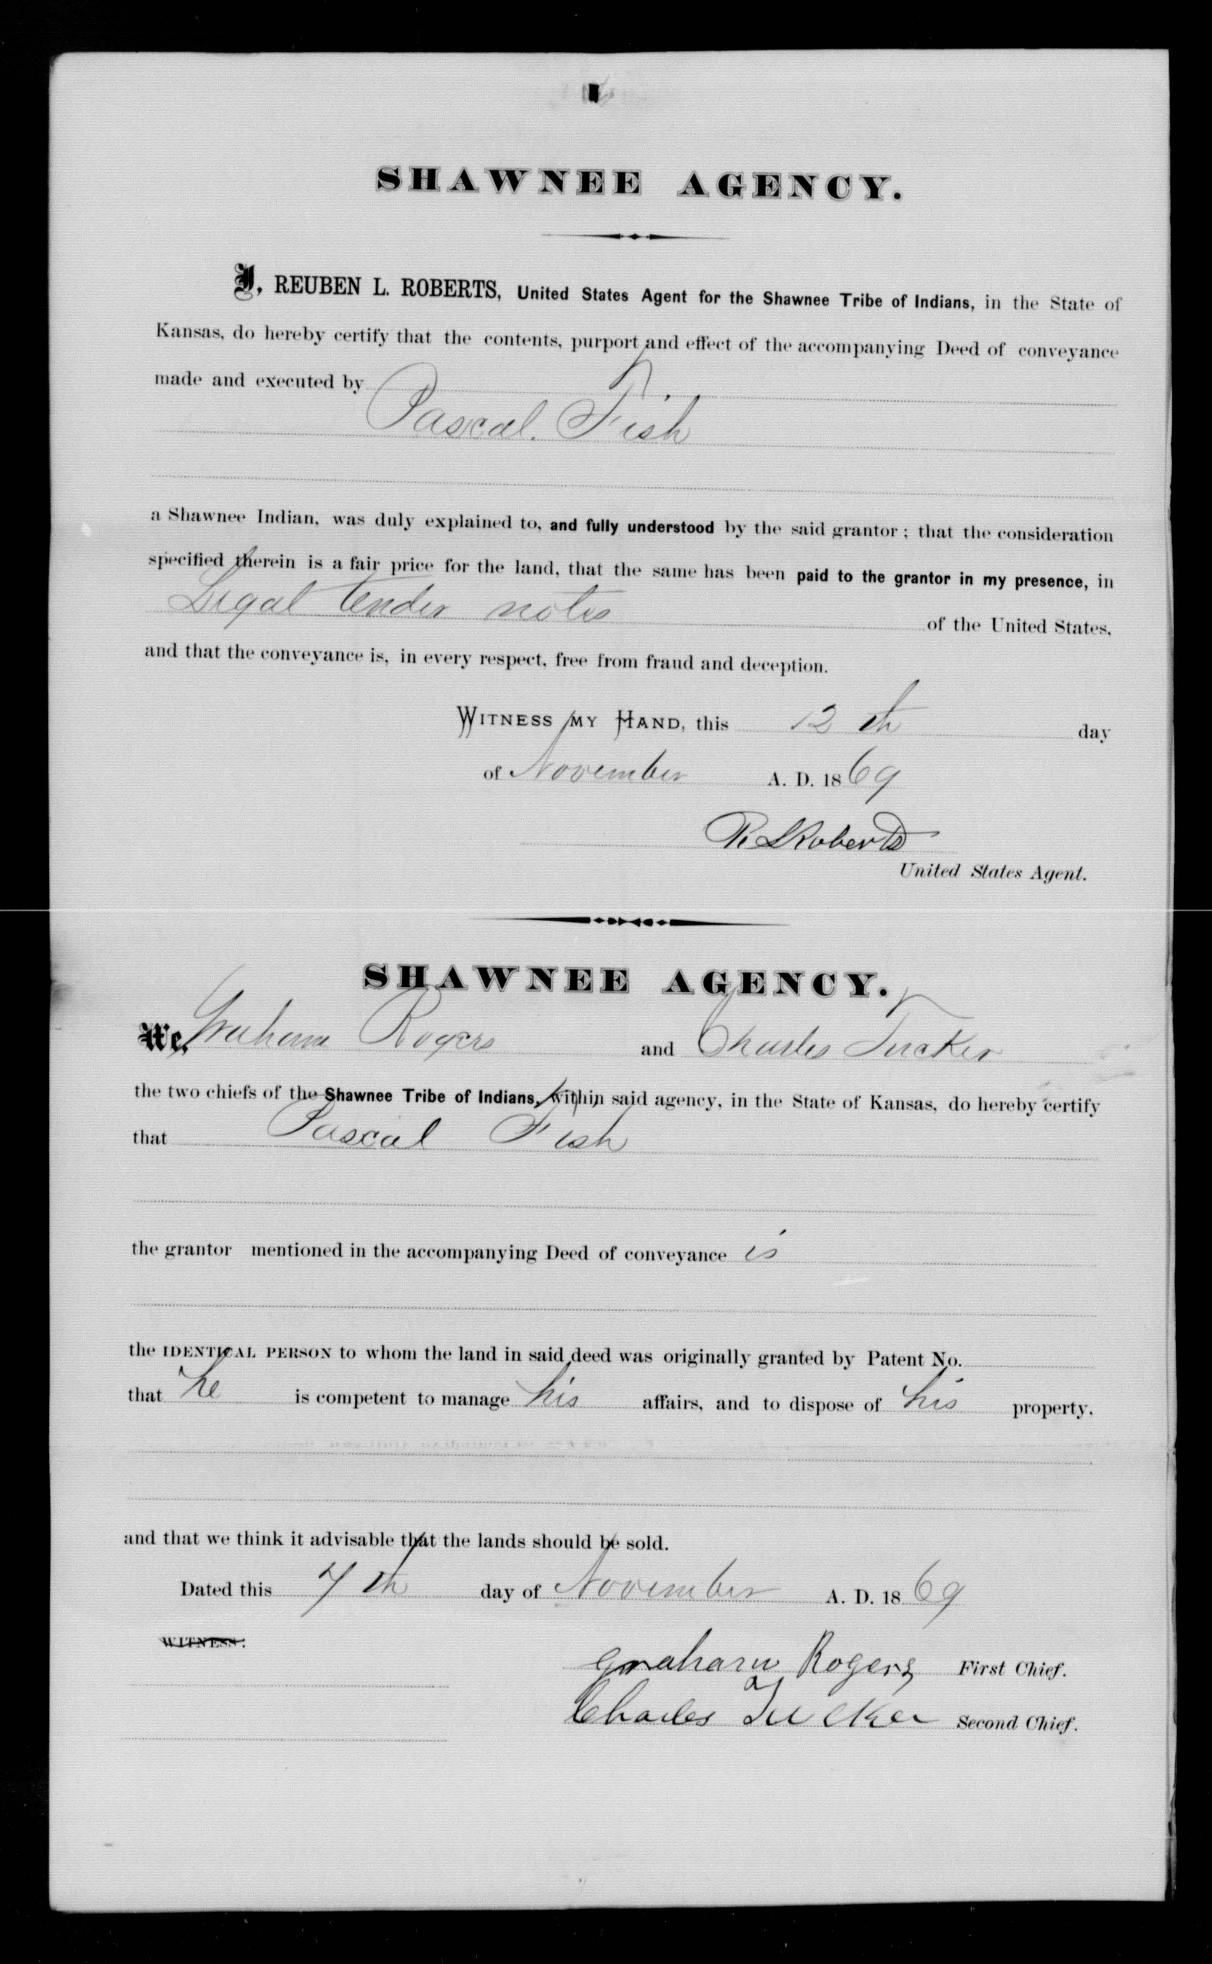 SHAWNEE AGENCY.
I, REUBEN L. ROBERTS, United States Agent for the Shawnee Tribe of Indians, in the State of
Kansas, do hereby certify that the contents, purport and effect of the accompanying Deed of conveyance
made and executed by
Pascal. Fish
a Shawnee Indian, was duly explained to, and fully understood by the said grantor; that the consideration
specified therein is a fair price for the land, that the same has been paid to the grantor in my presence, in
Legal tender notes of the United States,
and that the conveyance is, in every respect, free from fraud and deception.
WITNESS MY HAND, this 12th day
of November A. D. 1869
R. L Roberts
United States Agent.
SHAWNEE AGENCY.
We, Graham Rogers and Charles Tucker
the two chiefs of the Shawnee Tribe of Indians, within said agency, in the State of Kansas, do hereby certify
that Pascal Fish
the grantor mentioned in the accompanying Deed of conveyance is
the IDENTICAL PERSON to whom the land in said deed was originally granted by Patent No.
that he is competent to manage his affairs, and to dispose of his property,
and that we think it advisable that the lands should be sold.
Dated this 7th day of November A. D. 1869
WITNESS:
Graham Rogers First Chief.
Charles Tucker Second Chief.